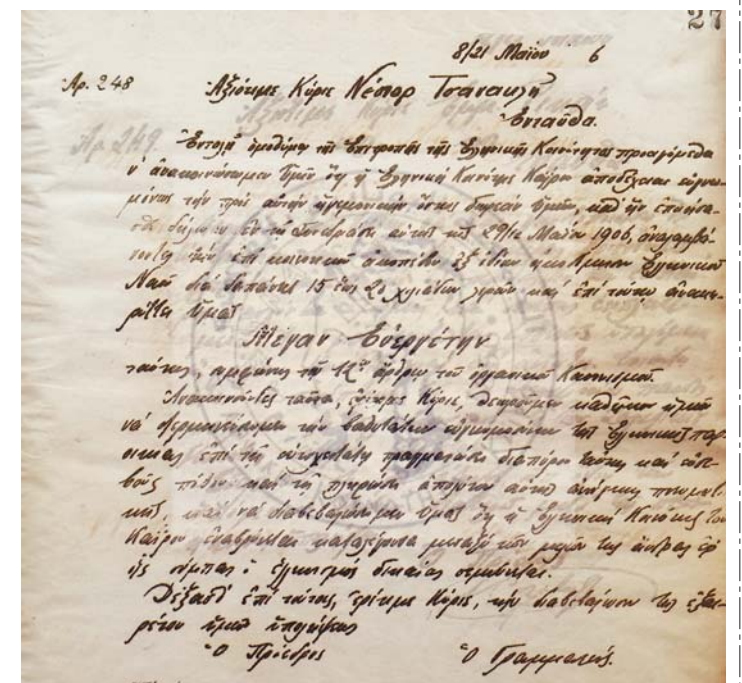 27
8/21 Μαΐου 6
Ἀρ. 248 Ἀξιότιμε Κύριε Νέστορ Τσανακλῆ
Ἐνταῦθα.
Ἐντολῇ ὁμοθύμῳ τῆς Ἐπιτροπῆς τῆς Ἑλληνικῆς Κοινότητος προαγόμεθα
ν' ἀνακοινώσωμεν Ὑμῖν ὅτι ἡ Ἑλληνική Κοινότης Καΐρου ἀποδέχεται εὐγνω-
μόνως τὴν πρὸς αὐτὴν ἡγεμονικὴν ὄντως δωρεὰν Ὑμῶν, καθ' ἣν ἐποιήσα-
σθε δήλωσιν ἐν τῇ Συνεδριάσει αὐτῆς τῆς 29/12 Μαΐου 1906, ἀναλαμβά-
νοντες τὴν ἐπὶ κοινοτικοῦ οἰκοπέδου ἐξ ἰδίων Ἑλληνικοῦ
Ναοῦ διὰ δαπάνης 15 ἕως 20 χιλιάδων λιρῶν καὶ ἐπὶ τούτῳ ἀνακη-
ρύττει Ὑμᾶς
Μέγαν Εὐεργέτην
ταύτης, συμφώνως τῷ 12ῳ ἄρθρῳ τοῦ ὀργανικοῦ Κανονισμοῦ.
Ἀνακοινοῦντες ταῦτα, ἐρίτιμε Κύριε, θεωροῦμεν καθῆκον ἡμῶν
νὰ διερμηνεύσωμεν τὴν βαθυτάτην εὐγνωμοσύνην τῆς Ἑλληνικῆς παρ-
οικίας ἐπὶ τῇ πραγματώσει διαπύρου ταύτης καὶ εὐσε-
βοῦς πόθου καὶ τῇ πληρώσει ἀπολύτου αὐτῆς ἀνάγκης πνευματι-
κῆς, καὶ νὰ διαβεβαιώσωμεν Ὑμᾶς ὅτι ἡ Ἑλληνική Κοινότης τοῦ
Καΐρου ἐναβρύνεται καταλέγουσα μεταξὺ τῶν μελῶν της ἄνδρας ἐφ'
οἷς σύμπας ὁ ἑλληνισμὸς δικαίως σεμνύνεται.
Δέξασθ' ἐπὶ τούτοις, ἐρίτιμε Κύριε, τὴν διαβεβαίωσιν τῆς ἐξαι-
ρέτου ἡμῶν ὑπολήψεως
Ὁ Πρόεδρος Ὁ Γραμματεύς.